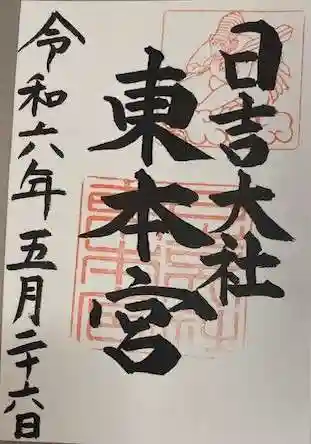 日吉大社
東本宮
令和六年五月二十六日